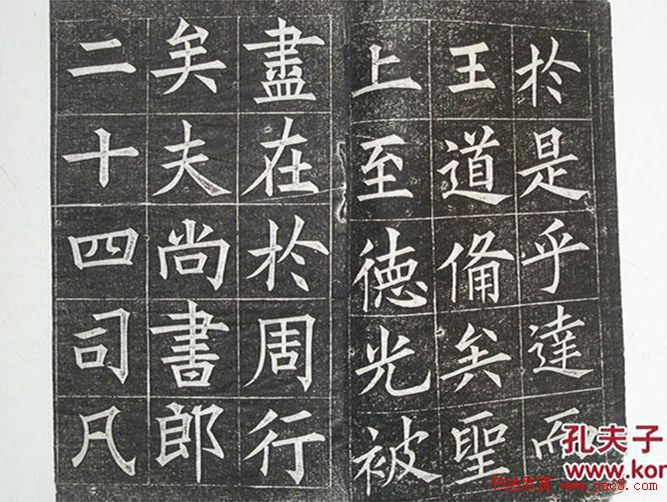 於是乎達而
王道備矣聖
上至德光被
盡在於周行
矣夫尚書郎
二十四司凡
孔夫子
书法欣赏 www.yac8.com